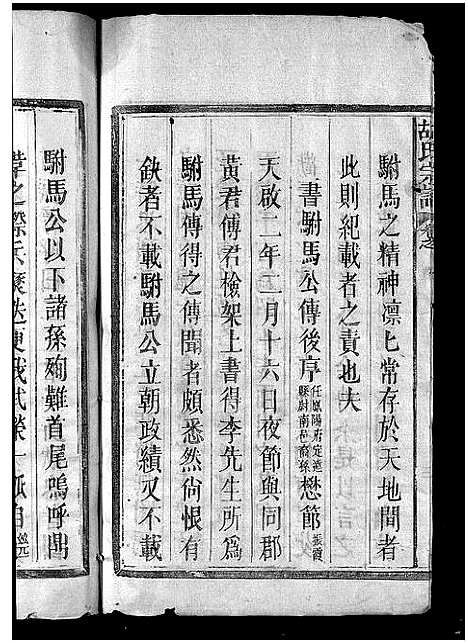 胡氏宗譜
駙馬之精神凛匕常存於天地間者
此則紀載者之責也夫
書駙馬公傳後序 任鳳陽府定遠縣尉南邑裔孫懋節振霞
天啟二年二月十六日夜節與同郡
黃君傅君檢架上書得李先生所爲
駙馬傳得之傳聞者頗悉然尙恨有
缺者不載駙馬公立朝政績又不載
駙馬公以下諸孫殉難首尾嗚呼鼎
革之際兵燹迭更我武榮一派自